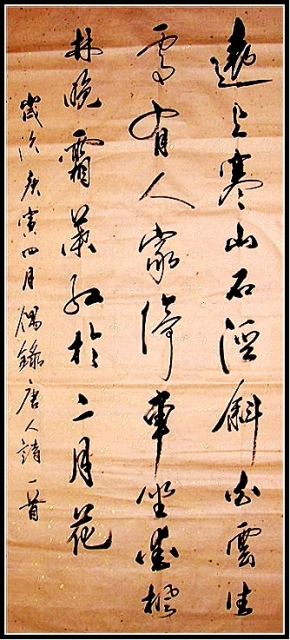 遠上寒山石徑斜白雲生
處有人家停車坐愛楓
林晚霜葉紅於二月花
歲次庚寅四月偶錄唐人詩一首